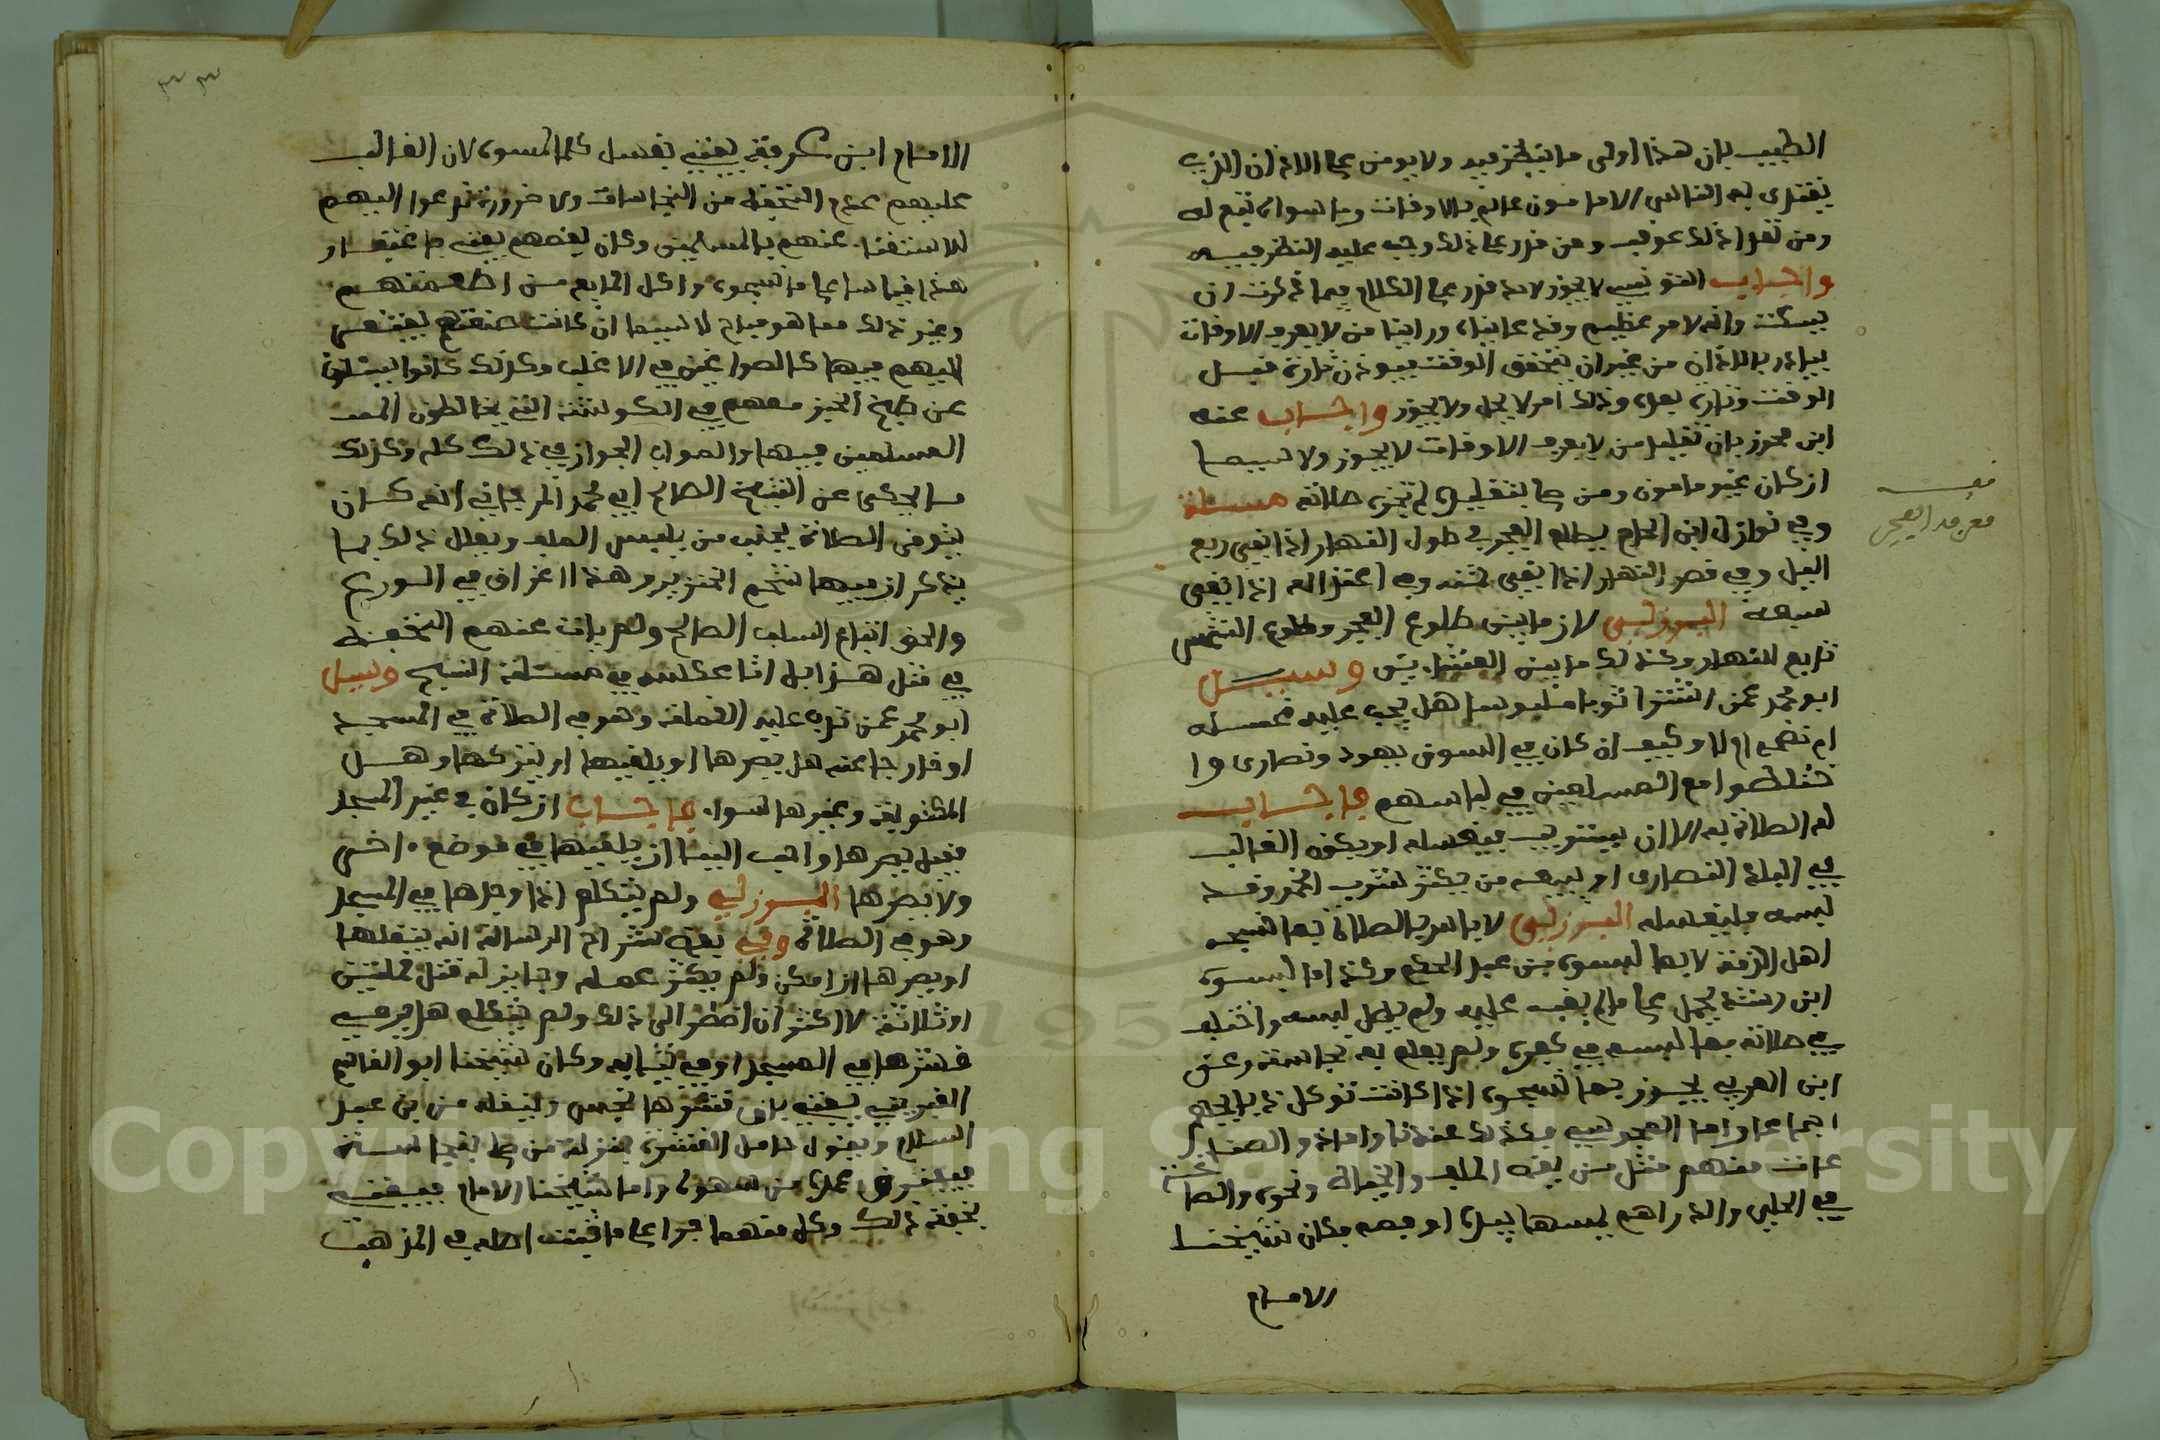 الطبيب بان هذا اولى ما ينظر فيه ولا يومن على الاذان الذي
يقتدى به الناس الا مامون عالم بالاوقات وما سواه تبع له
ومن تعدا ذلك عوقب ومن قدر على ذلك وجب عليه النظر فيه
واجاب التونسي لا يجوز لاحد قدر على الكلام فيما ذكرت ان
يسكت وانه لامر عظيم وقد عاينا وراينا من لا يعرف الاوقات
يبادر بالاذان من غير ان يتحقق الوقت فيوذن تارة قبل
الوقت وتارة بعده وذلك امر لا يحل ولا يجوز واجاب عنه
ابن محرز بان تقليد من لا يعرف الاوقات لا يجوز ولا سيما
ان كان غير مامون ومن صلى بتقليده لم تجزه صلاته مسئلة
وفي نوازل ابن الحاج يطلع الفجر في طول النهار اذا بقي ربع
الليل وفي قصر النهار اذا بقي ثمنه وفي اعتداله اذا بقي
سبعه البرزلي لان ما بين طلوع الفجر وطلوع الشمس
تابع للنهار وكذلك ما بين العشاءين وسيل
ابو محمد عمن اشترا ثوبا ملبوسا هل يجب عليه غسله
ام نضحه ام لا وكيف ان كان في السوق يهود ونصارى وا
ختلطوا مع المسلمين في لباسهم فاجاب
له الصلاة به الا ان يستريب فيغسله او يكون الغالب
في البلد النصارى او يبيعه من يكثر شرب الخمر وقد
لبسه فليغسله البرزلي لا باس بالصلاة بما نسجه
اهل الذمة لا بما لبسوه بن عبد الحكم وكذا ما لبسوه
ابن رشد يحمل على ما لم يغب عليه ولم يطل لبسه واختلف
في صلاته بما لبسه في كفره ولم يعلم به نجاسة وعن
ابن العربي يجوز بما نسجوه اذا كانت توكل ذبايحهم
اجماعا واما المجوسي فكذلك عندنا واما ذو الصنايع
عادت منهم مثل من يعمل الملف والخياطة ونحوه والصاغة
في الحلي والدراهم يمسها بيده او فمه فكان شيخنا
الامام
الامام ابن عرفة يفتي بغسل كلما لمسوه لان الغالب
عليهم عدم التحفظ من النجاسات ولا ضرورة تدعوا اليهم
للاستغناء عنهم بالمسلمين وكان بعضهم يفتي باغتفار
هذا قياسا على ما نسجوه واكل الجائع من اطعمتهم
وغير ذلك مما هو مباح لا سيما ان كانت صنعتهم يفتقر
اليهم فيها كالصواغين في الاغلب وكذلك كانوا يسئلون
عن طبخ الخبز معهم في الكوشة التي يخالطون المعـ
المسلمين فيها والصواب الجواز في ذلك كله وكذلك
ما يحكى عن الشيخ الصالح ابي محمد المرجاني انه كان
يتوقى الصلاة بجنب من يلبس الملف ويعلل ذلك بما
يذكر ان فيها شحم الخنزير وهذا اغراق في الورع
والحق اتباع السلف الصالح ولم يات عنهم التحفظ
في مثل هذا بل اتا عكسه في مسئلة النسج وسيل
ابو محمد عمن تدب عليه القملة وهو في الصلاة في المسجد
او خارجا عنه هل يصرها او يلقيها او يتركها وهل
المكتوبة وغيرها سواء فاجاب ان كان في غير المسجد
فقيل يصرها واحب الينا ان يلقيها في موضع اخر
ولا يصرها البرزلي ولم يتكلم اذا وجدها في المسجد
وهو في الصلاة وفي بعض شراح الرسالة انه ينقلها
او يصرها ان امكن ولم يكثر عمله وجايز له قتل قملتين
او ثلاثة لا اكثر ان اضطر الى ذلك ولم يتكلم هل يرمي
قشرها في المسجد او في ثيابه وكان شيخنا ابو القاسم
الغبريني يفتي بان قشرها نجس وينقله من بن عبد
السلام ويقول حامل القشرة بمنزلة من صلى بنجاسة
فيفترق عمده من سهوه واما شيخنا الامام فيفتي
بخفة ذلك وكل منهما جرا على ما ثبت اصله في المذهب